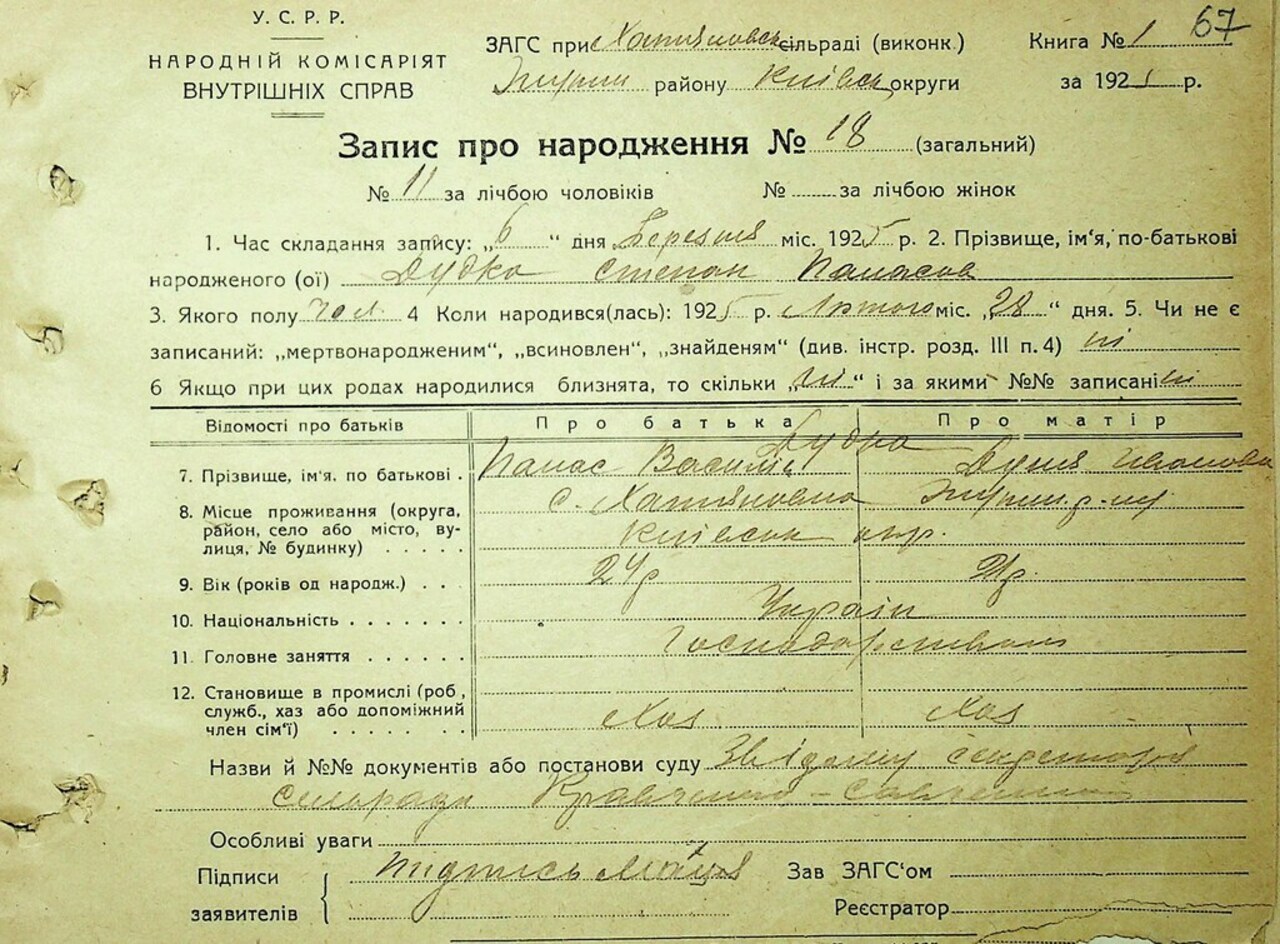 67
У. С. Р. Р.
НАРОДНІЙ КОМІСАРІЯТ
ВНУТРІШНІХ СПРАВ
ЗАГС при сільраді (виконк.)
району Київськ округи
Книга № 1
за 192 р.
Запис про народження № 18 (загальний)
№ 11 за лічбою чоловіків № за лічбою жінок
1. Час складання запису: „6“ дня Березня міс. 1925 р. 2. Прізвище, ім‘я, по-батькові
народженого (ої) Дудка Степан Панасов
3. Якого полу чол 4 Коли народився(лась): 1925 р. Лютого міс. „28“ дня. 5. Чи не є
записаний: „мертвонародженим“, „всиновлен“, „знайденям“ (див. інстр. розд. III п. 4) ні
6 Якщо при цих родах народилися близнята, то скільки „ні“ і за якими №№ записані ні
Відомості про батьків Про батька Про матір
Дудка
7. Прізвище, ім‘я. по батькові . Панас Василів Іванова
8. Місце проживання (округа, с.
район, село або місто, ву- Київськ окр.
лиця, № будинку) . . . . .
9. Вік (років од народж.) . . . 24р
10. Національність . . . . . . . Україн
11. Головне заняття . . . . . .
12. Становище в промислі (роб.,
служб., хаз або допоміжний Хаз Хаз
член сім‘ї) . . . . . . .
Назви й №№ документів або постанови суду Звідому секретаря
сельради
Особливі уваги
Підписи Підпись Зав ЗАГС‘ом
заявителів Реєстратор